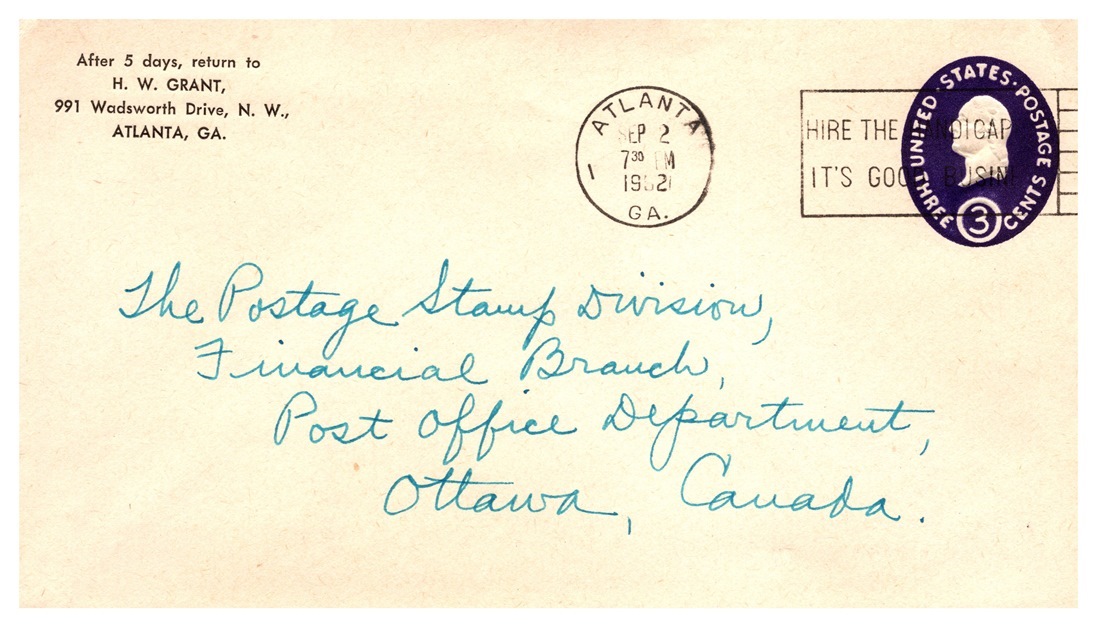 After 5 days, return to
H. W. GRANT,
991 Wadsworth Drive, N. W.,
ATLANTA, GA.
ATLANTA
SEP 2
7 30 PM
1952
1
GA.
HIRE THE HANDICAPPED
IT'S GOOD BUSINESS
UNITED STATES · POSTAGE
THREE CENTS
3
The Postage Stamp Division,
Financial Branch,
Post Office Department,
Ottawa, Canada.